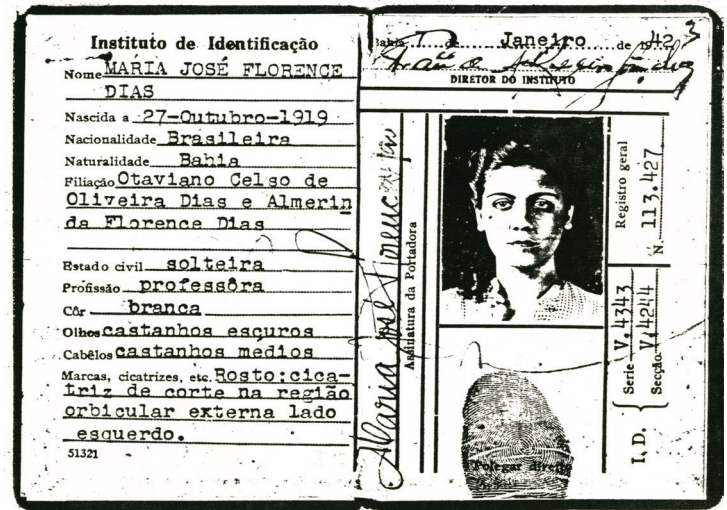 Instituto de Identificação
Nome MARIA JOSÉ FLORENCE
DIAS
Nascida a 27-Outubro-1919
Nacionalidade Brasileira
Naturalidade Bahia
Filiação Otaviano Celso de
Oliveira Dias e Almerin
da Florence Dias
Estado civil solteira
Profissão professôra
Côr branca
Olhos castanhos escuros
Cabêlos castanhos medios
Marcas, cicatrizes, etc. Rosto:cica-
triz de corte na região
orbicular externa lado
esquerdo.
51321
Bahia de Janeiro de 1942
DIRETOR DO INSTITUTO
Maria José Florence Dias
Assinatura da Portadora
Registro geral
N. 113.427
Serie V.4343
Secção V.4244
I. D.
Polegar direito